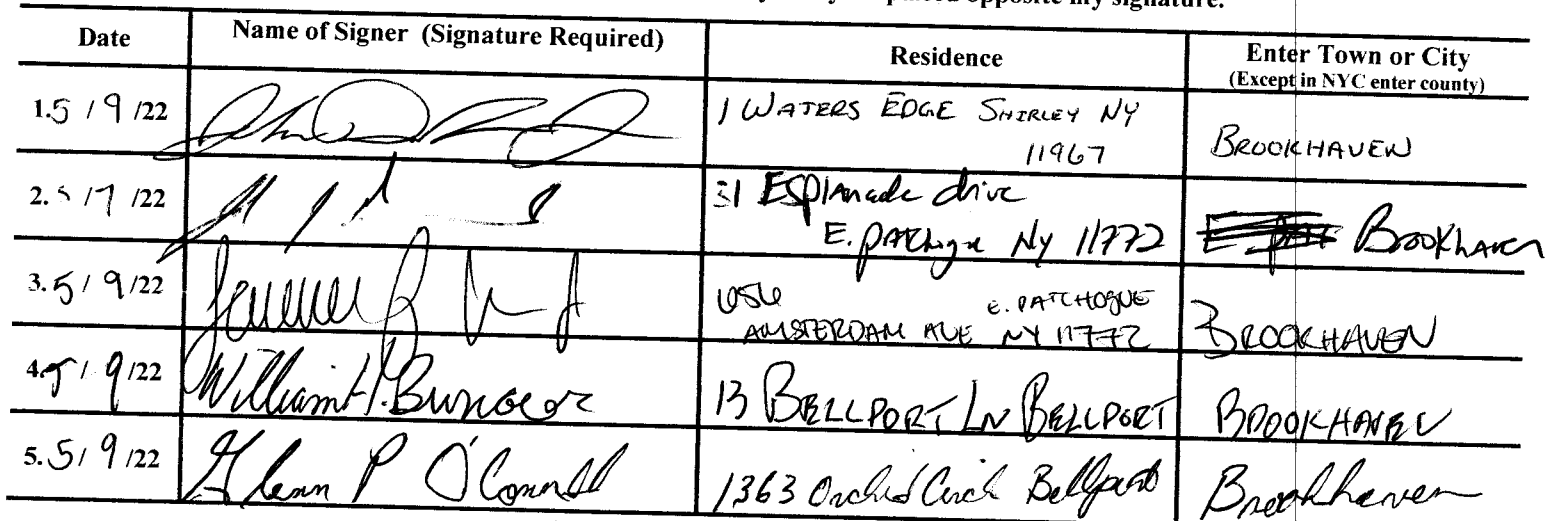 opposite my signature.
Date Name of Signer (Signature Required) Residence Enter Town or City
(Except in NYC enter county)
1. 5/9/22 1 WATERS EDGE SHIRLEY NY
11967 BROOKHAVEN
2. 5/17/22 31 Esplanade drive
E. patchogue Ny 11772 Brookhaven
3. 5/9/22 E. PATCHOGUE
AMSTERDAM AVE NY 11772 BROOKHAVEN
4. 5/9/22 William H. 13 BELLPORT LN BELLPORT BROOKHAVEN
5. 5/9/22 Glenn P O'Connell 1363 Orchid Circle Bellport Brookhaven